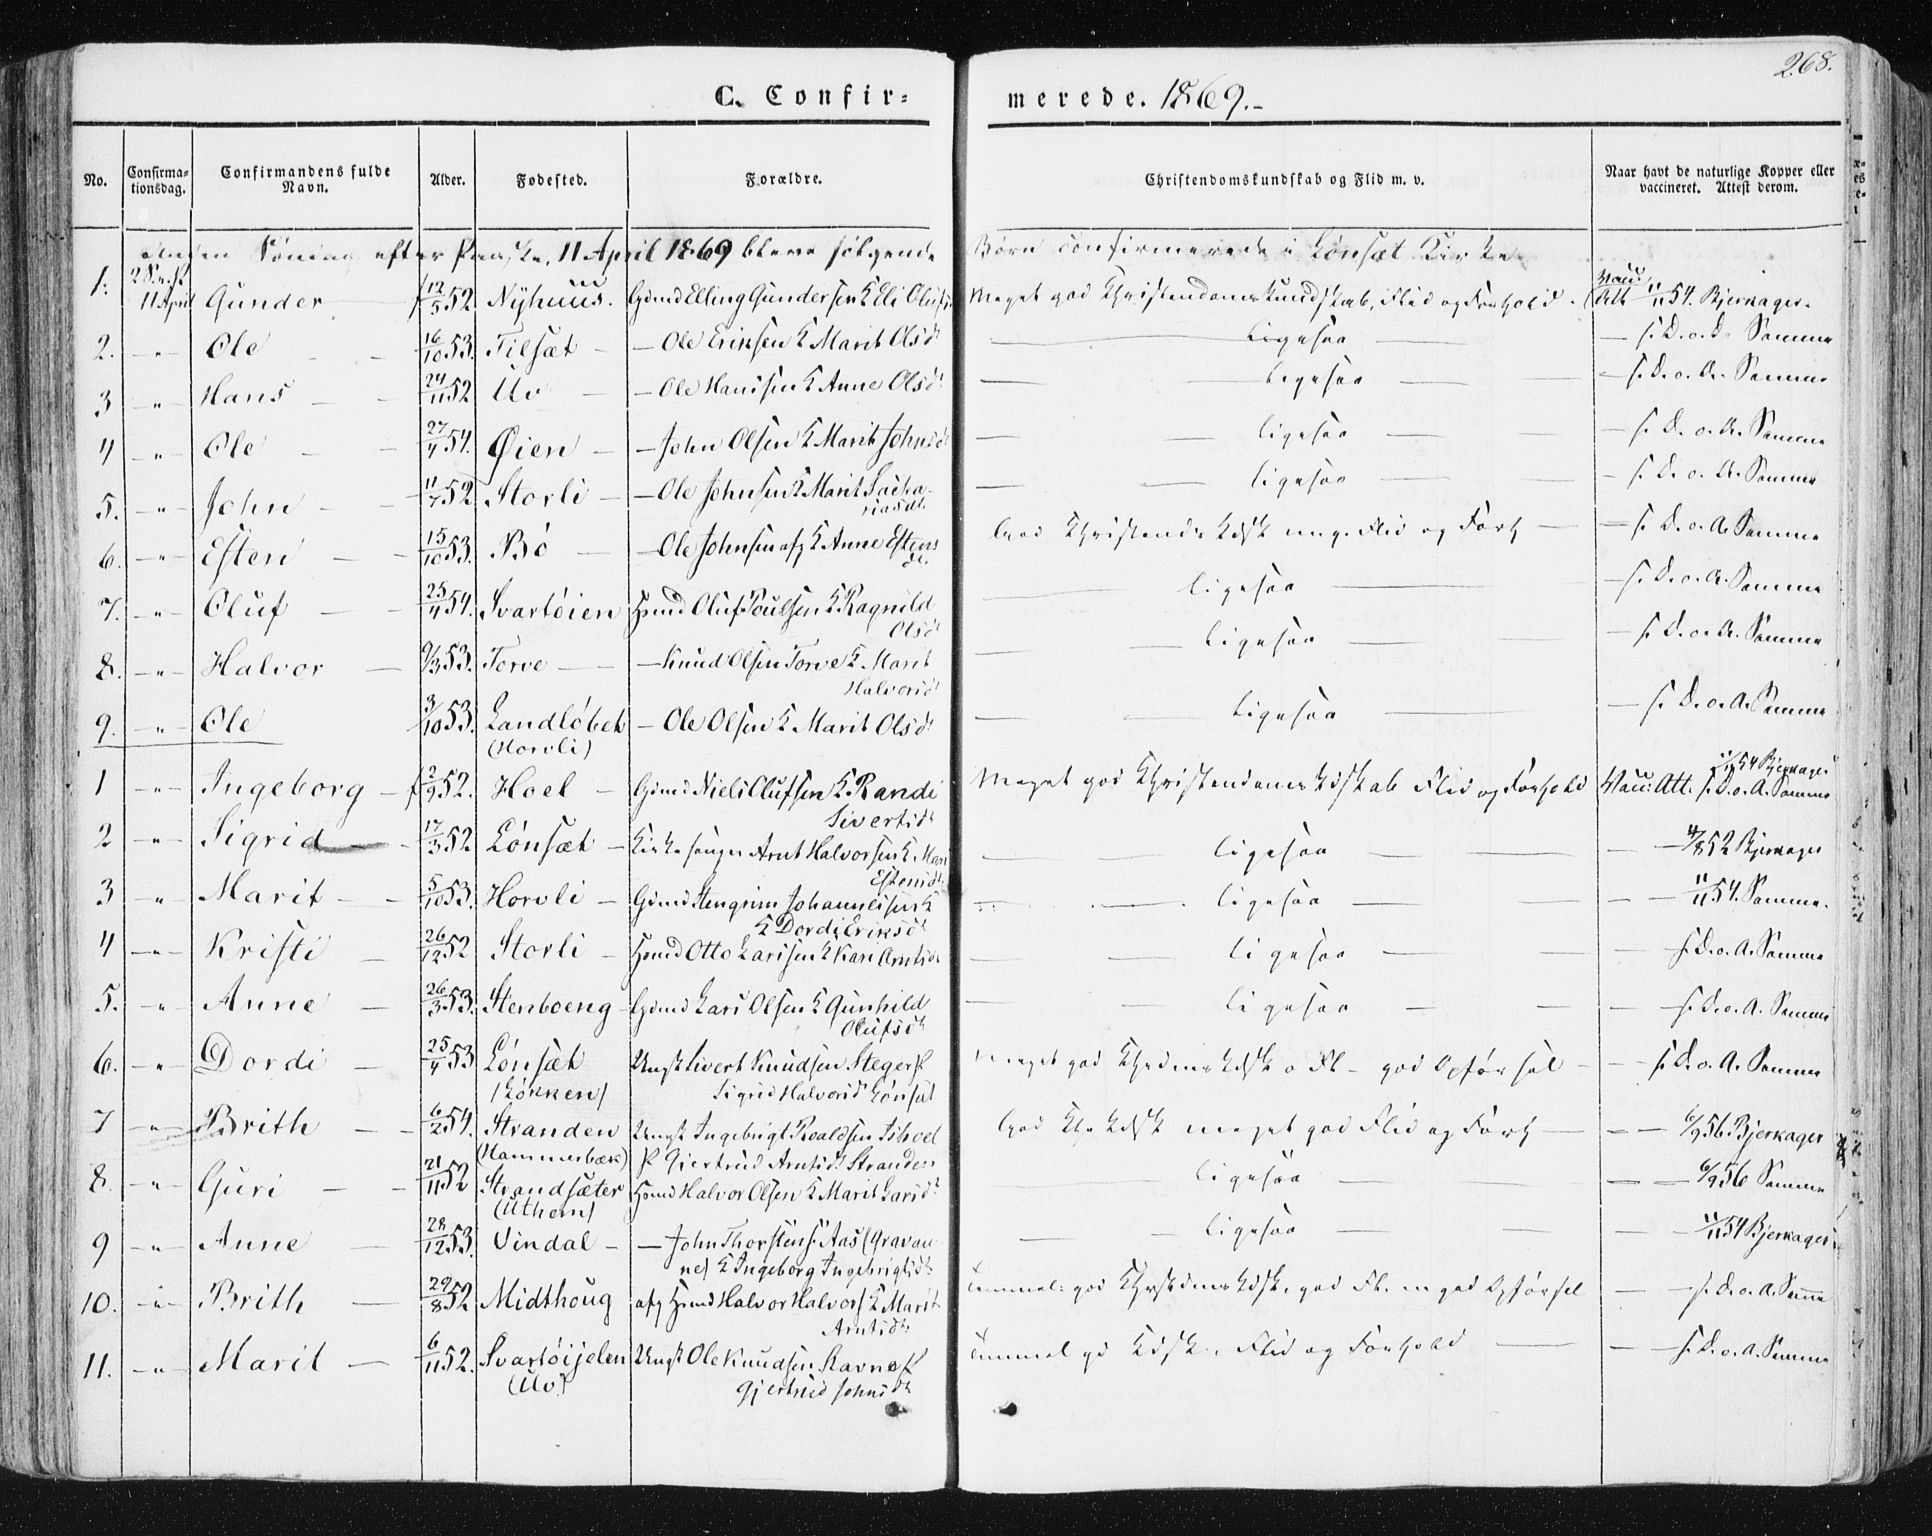 268.
C. Confirmerede. 1869.-
No. Confirmationsdag. Confirmandens fulde Navn. Alder. Fødested. Forældre. Christendomskundskab og Flid m. v. Naar havt de naturlige Kopper eller vaccineret. Attest derom.
Anden Söndag efter Paaske, 11 April 1869 bleve fölgende Börn confirmerede i Lønsæt Kirke
1. 11 April Gunder f 12/5 52. Nyhuus. Gdmd Elling Gundersen & Eli Olufsd Meget god Christendomskundskab, Flid og Forhold. Vacc Att 11/11 54. Bjerkager.
2. -"- Ole 16/10 53. Tilsæt - Ole Eriksen & Marit Olsdt ligesaa - s. D. o. A. Samme
3 -"- Hans 24/11 52 Uv - Ole Hansen & Anne Olsdt ligesaa - s. D. o. A. Samme
4 -"- Ole 27/4 54. Øien - John Olsen & Marit Johnsdt ligesaa - s. D. o. A. Samme
5. -"- John 11/7 52. Storli - Ole Johnsen & Marit Sachariasdt. ligesaa - s. D. o. A. Samme
6. -"- Esten 15/10 53. Bö - Ole Johnsen afg & Anne Estensdt. God Christends Kdsk meg. Flid og Forh - s. D. o. A. Samme
7. -"- Oluf 25/4 54. Svartöien Hmd Oluf Poulsen & Ragnild Olsdt ligesaa - s. D. o. A. Samme
8. -"- Halvor 9/3 53. Torve - Knud Olsen Torve & Marit Halvorsdt ligesaa - s. D. o. A. Samme
9. -"- Ole 3/10 53. Landlöbet (Horvli) - Ole Olsen & Marit Olsdt ligesaa - s. D. o. A. Samme
1 -"- Ingeborg f 2/9 52. Hoel - Gdmd Niels Olufsen & Randi Sivertsdt Meget god Christendomskdskab Flid og Forhold Vacc: Att. 11/11 54 Bjerkager s. D. o. A. Samme
2 -"- Sigrid 17/3 52 Lönsæt - Kirkesanger Arnt Halvorsen & Mari Estensdt. ligesaa 4/8 52 Bjerkager
3 -"- Marit 5/10 53. Horvli - Gdmd Stengrim Johannessen & & Dordi Eriksdt ligesaa 11/11 54. Samme.
4 -"- Kristi 26/12 52 Storli - Hmd Otto Larssen & Kari Arntsdt ligesaa - s. D. o. A. Samme
5. -"- Anne 26/3 53. Stenboeng Gdmd Lars Olsen & Gunhild Olufsdt ligesaa - s. D. o. A. Samme
6. -"- Dordi 25/4 53 Lönsæt (Løkken) Ungk Sivert Knudsen Steger & P Sigrid Halvorsd Lönsæt Meget god Chrdmskdsk o Fl - god Opførsel - s. D. o. A. Samme
7 -"- Brith 6/2 54. Stranden (Hammerbæk) Ungk Ingebrigt Roaldsen P Gjertrud Arntsdt Stranden God Chr Kdsk meget god Flid og Forh 6/9 56 Bjerkager
8. -"- Guri 21/11 52 Strandsæter (Uthem) Hmd Halvor Olsen & Marit Larsdt ligesaa 6/9 56 Samme
9 -"- Anne 28/12 53. Vindal - John Thorstens. Aas (Gravaune) & Ingeborg Ingebrigtsdt ligesaa 11/11 54 Bjerkager
10. -"- Brith 29/8 52 Midthoug afg Hmd Halvor Halvors & Marit Arntsdt Temmel: god Chrstdmskdsk, god Fl. meget god Opførsel - s. D. o. A. Samme
11. -"- Marit 6/11 52. Svartöijelen (Uv) Ungk Ole Knudsen Ravne P Gjertrud Johnsdt Temmel gd Kdsk., Flid og Forhold - s. D. o. A. Samme